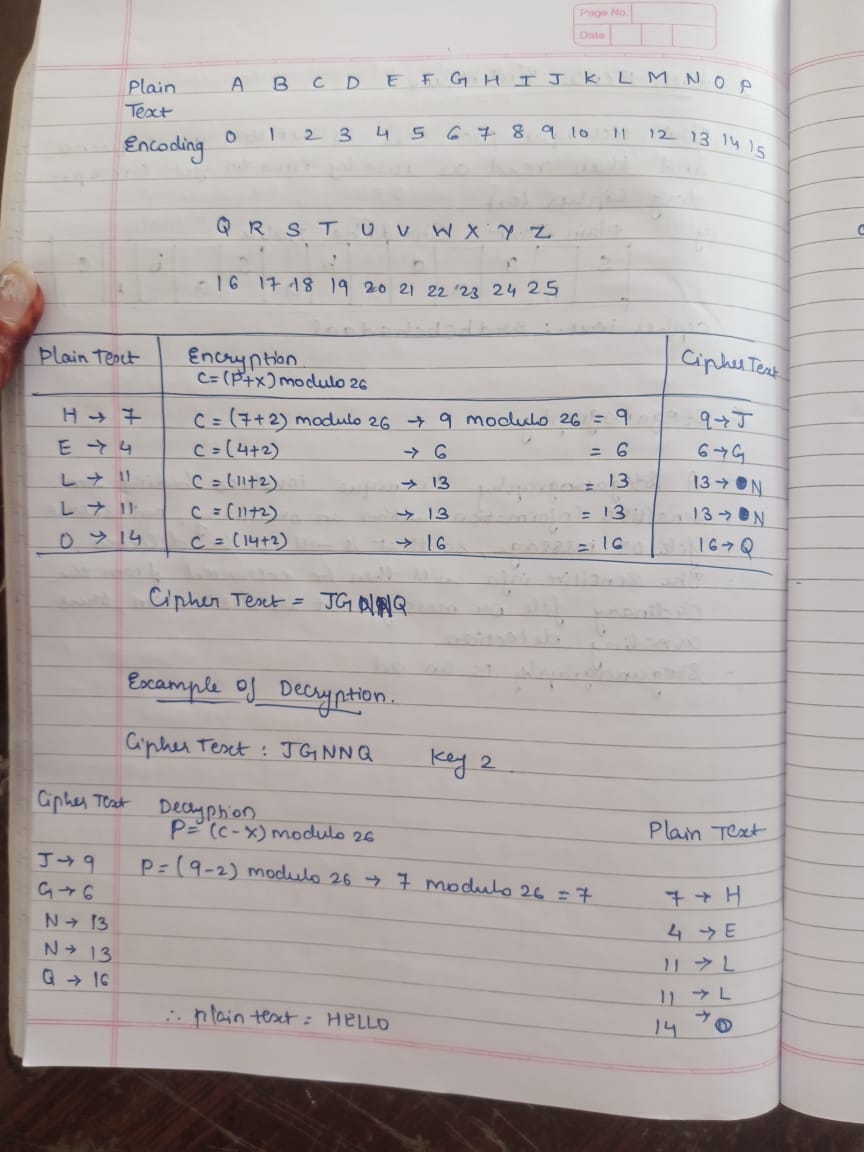 Page No.
Date
Plain Text A B C D E F G H I J K L M N O P
Encoding 0 1 2 3 4 5 6 7 8 9 10 11 12 13 14 15
Q R S T U V W X Y Z
16 17 18 19 20 21 22 23 24 25
Plain Text Encryption Cipher Text
C=(P+x) modulo 26
H → 7 C = (7+2) modulo 26 → 9 modulo 26 = 9 9 → J
E → 4 C = (4+2) → 6 = 6 6 → G
L → 11 C = (11+2) → 13 = 13 13 → N
L → 11 C = (11+2) → 13 = 13 13 → N
O → 14 C = (14+2) → 16 = 16 16 → Q
Cipher Text = JGNNQ
Example of Decryption.
Cipher Text : JGNNQ Key 2
Cipher Text Decryption Plain Text
P= (C-x) modulo 26
J → 9 P = (9-2) modulo 26 → 7 modulo 26 = 7 7 → H
G → 6 4 → E
N → 13 11 → L
N → 13 11 → L
Q → 16 14 → O
∴ plain text = HELLO